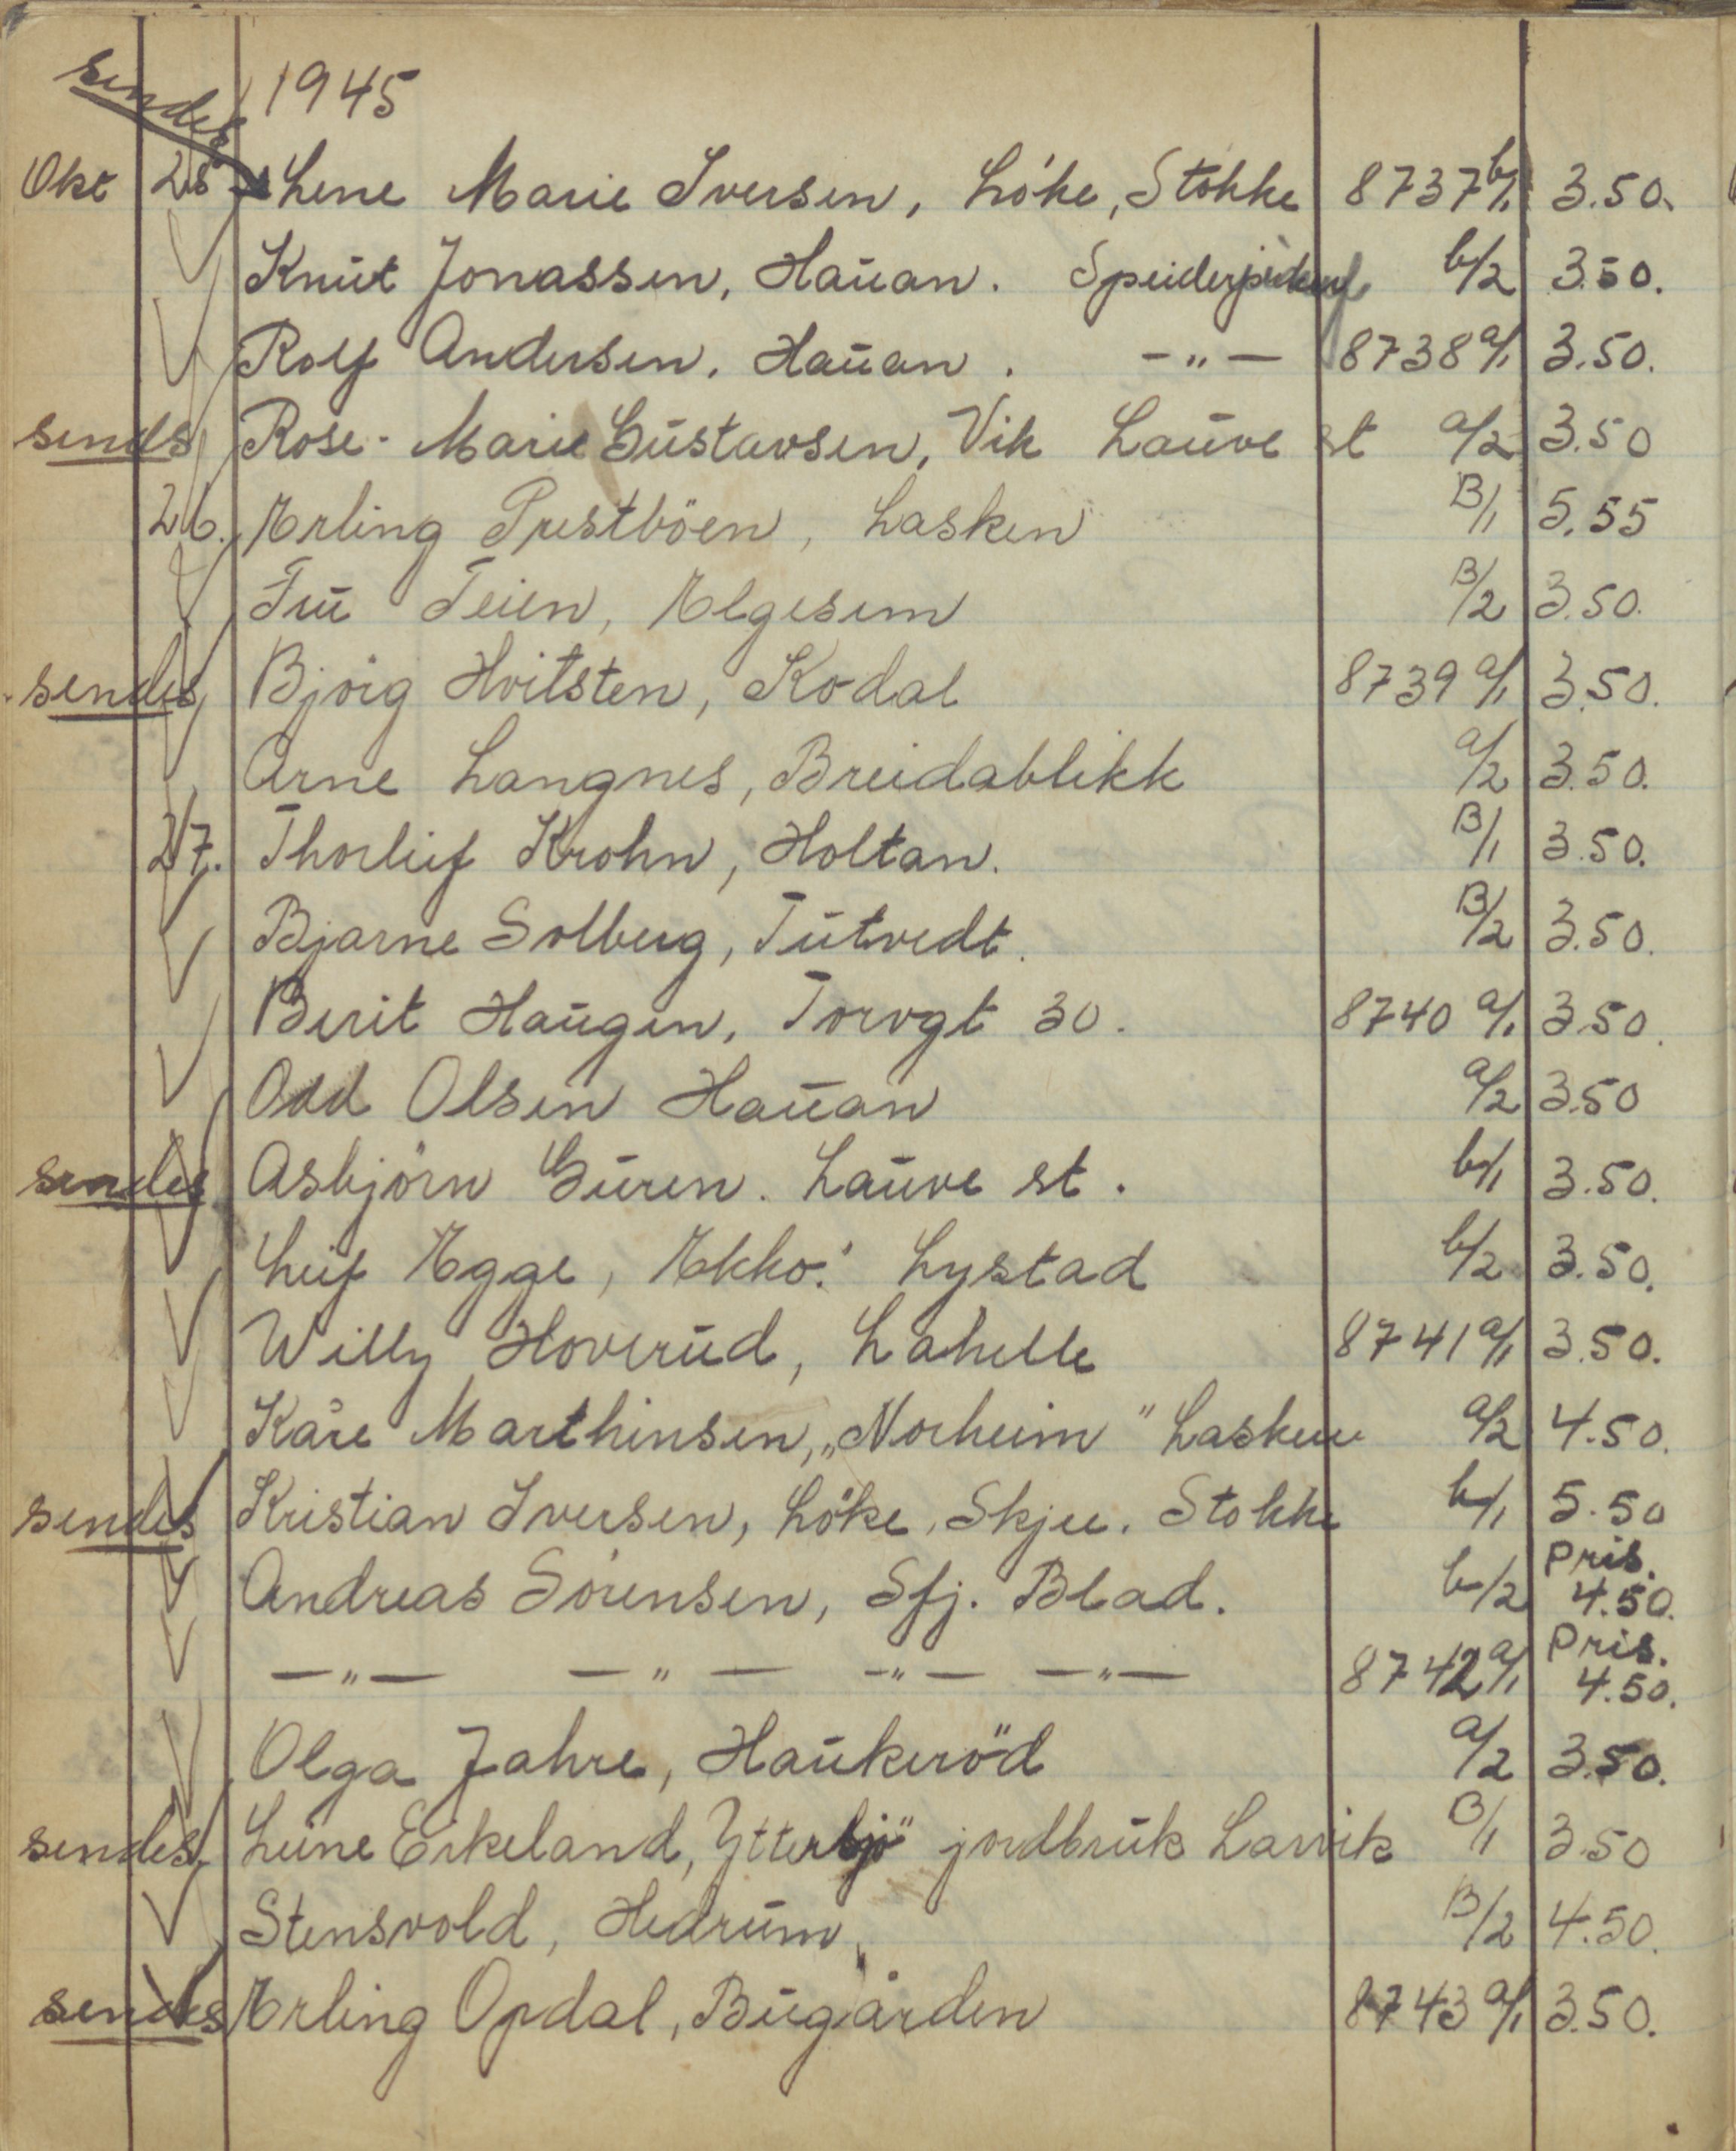 sendes 1945
Okt 25 Lene Marie Iversen, Löke, Stokke 8737 b/1 3.50.
Knut Jonassen, Hauan. b/2 3.50.
Rolf Andersen, Hauan. -"- 8738 a/1 3.50.
sendes Rose-Marie Gustavsen, Vik Lauve st a/2 3.50
26. Erling Prestböen, Lasken B/1 5.55
Fru Teien, Elgesem B/2 3.50.
sendes Bjørg Hvitsten, Kodal 8739 a/1 3.50.
Arne Langnes, Breidablikk a/2 3.50.
27. Thorleif Krohn, Holtan. B/1 3.50.
Bjarne Solberg, Tutvedt. B/2 3.50.
Berit Haugen, Torvgt 30. 8740 a/1 3.50.
Odd Olsen Hauan a/2 3.50
sendes Asbjörn Guren. Lauve st. b/1 3.50.
Leif Egge, Ekko. Lystad b/2 3.50.
Willy Hoverud, Lahelle 8741 a/1 3.50.
Kåre Marthinsen, „Norheim" Lasken a/2 4.50.
sendes Kristian Iversen, Löke, Skjee. Stokke b/1 5.50
Andreas Sörensen, Sfj. Blad. b/2 Pris. 4.50.
-"- -"- -"- -"- 8742 a/1 Pris. 4.50.
Olga Jahre, Haukeröd a/2 3.50.
sendes Leine Eikeland, jordbruk Larvik B/1 3.50
Stensvold, Hedrum B/2 4.50.
sendes Erling Opdal, Bugården 8743 a/1 3.50.